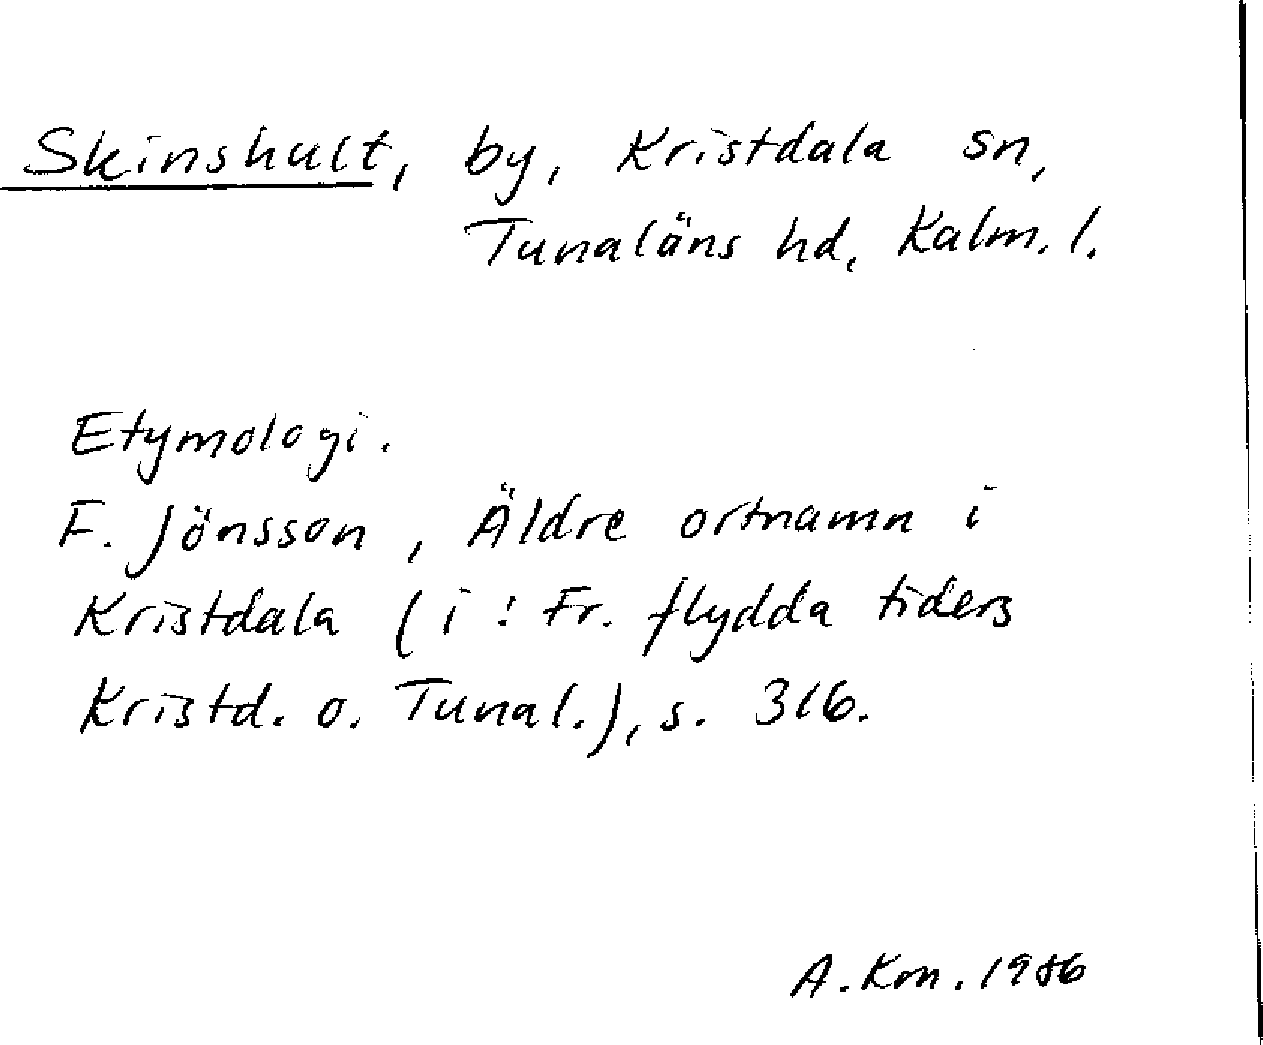 Skinshult, by, Kristdala sn,
Tunaläns hd, Kalm. l.
Etymologi.
F. Jönsson, Äldre ortnamn i
Kristdala (i: Fr. flydda tiders
Kristd. o. Tunal.), s. 316.
A. Km. 1986